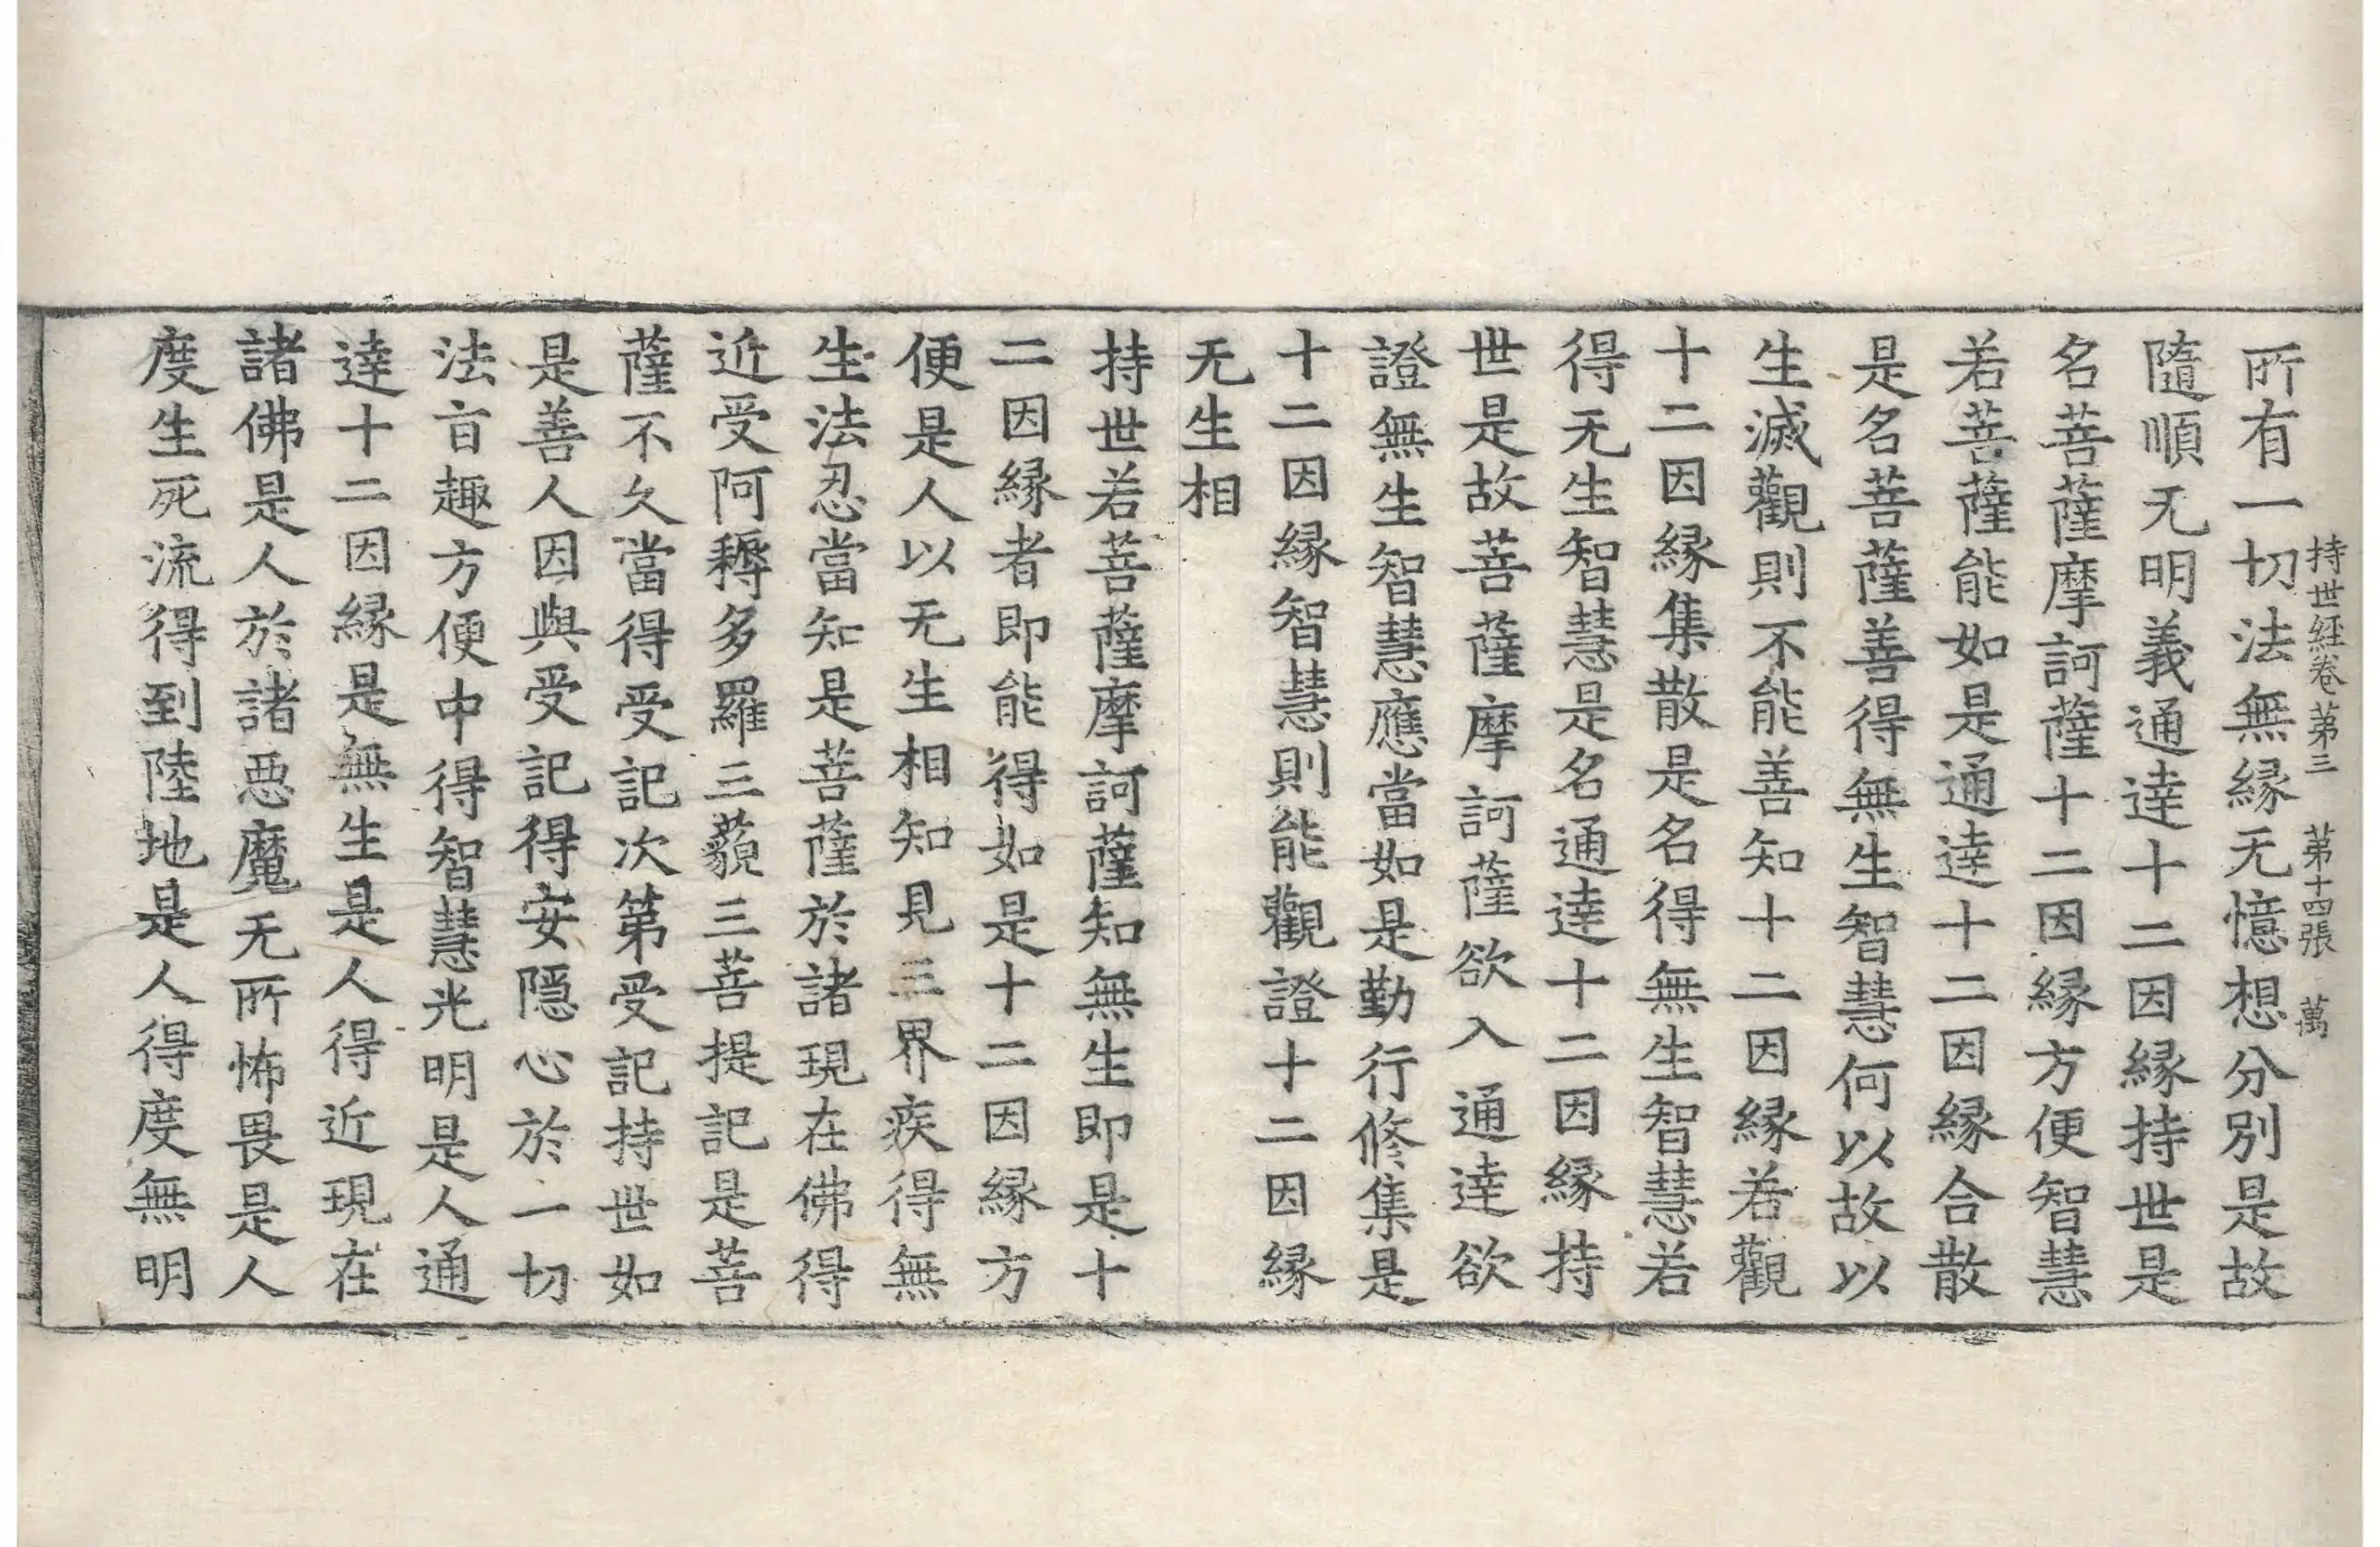 持世經卷第三 第十四張 萬
所有一切法無縁无憶想分別是故
隨順无明義通達十二因縁持世是
名菩薩摩訶薩十二因縁方便智慧
若菩薩能如是通達十二因縁合散
是名菩薩善得無生智慧何以故以
生滅觀則不能善知十二因縁若觀
十二因縁集散是名得無生智慧若
得无生智慧是名通達十二因縁持
世是故菩薩摩訶薩欲入通達欲
證無生智慧應當如是勤行修集是
十二因縁智慧則能觀證十二因縁
无生相
持世若菩薩摩訶薩知無生即是十
二因縁者即能得如是十二因縁方
便是人以无生相知見三界疾得無
生法忍當知是菩薩於諸現在佛得
近受阿耨多羅三藐三菩提記是菩
薩不久當得受記次第受記持世如
是善人因與受記得安隱心於一切
法盲趣方便中得智慧光明是人通
達十二因縁是無生是人得近現在
諸佛是人於諸惡魔无所怖畏是人
度生死流得到陸地是人得度無明